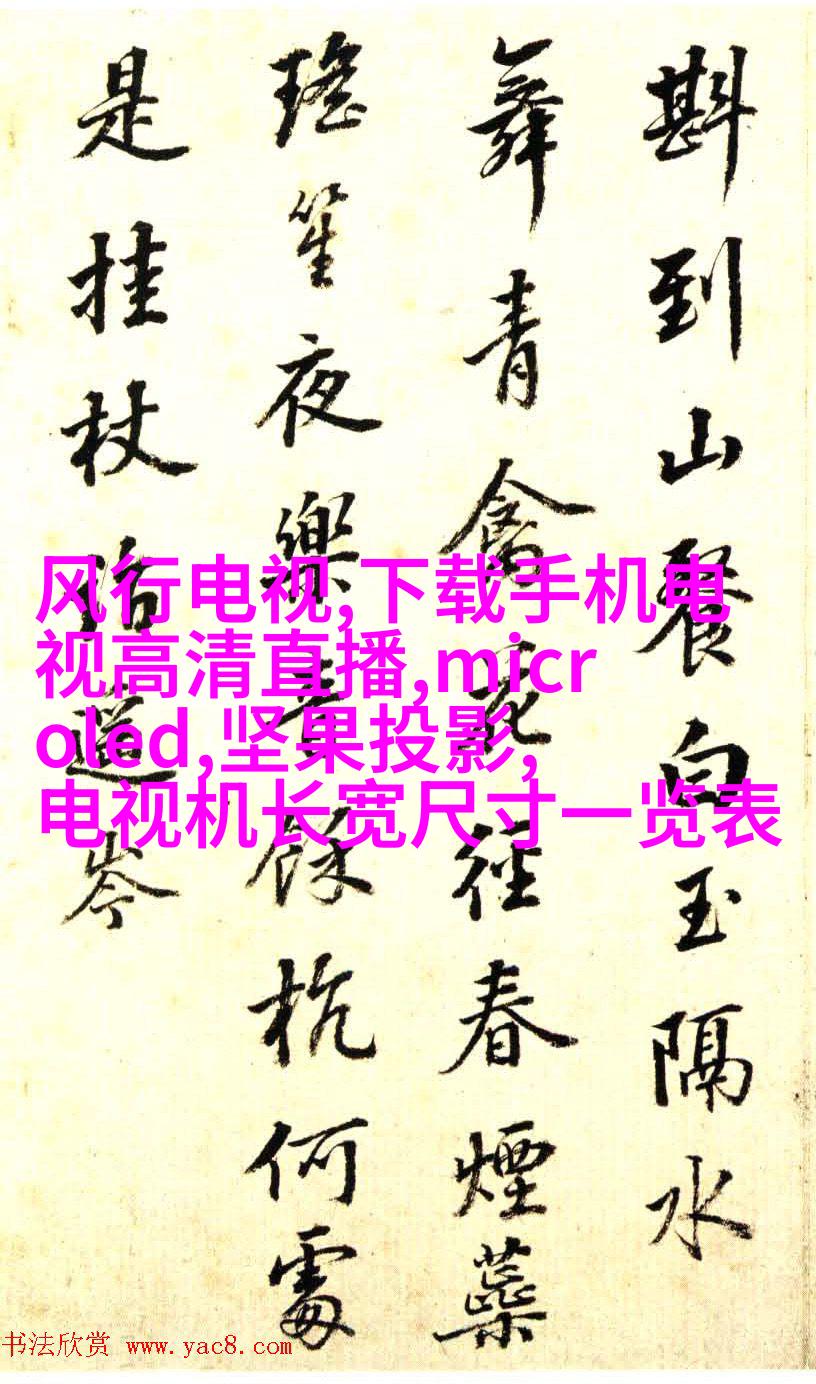 斟到山餐白玉隔水
舞青禽花径春煙蘂
瑤笙夜樂餘杭何處
是挂杖遥岑
风行电视,下载手机电
视高清直播,micr
oled,坚果投影,
电视机长宽尺寸一览表
书法欣赏 www.yac8.com